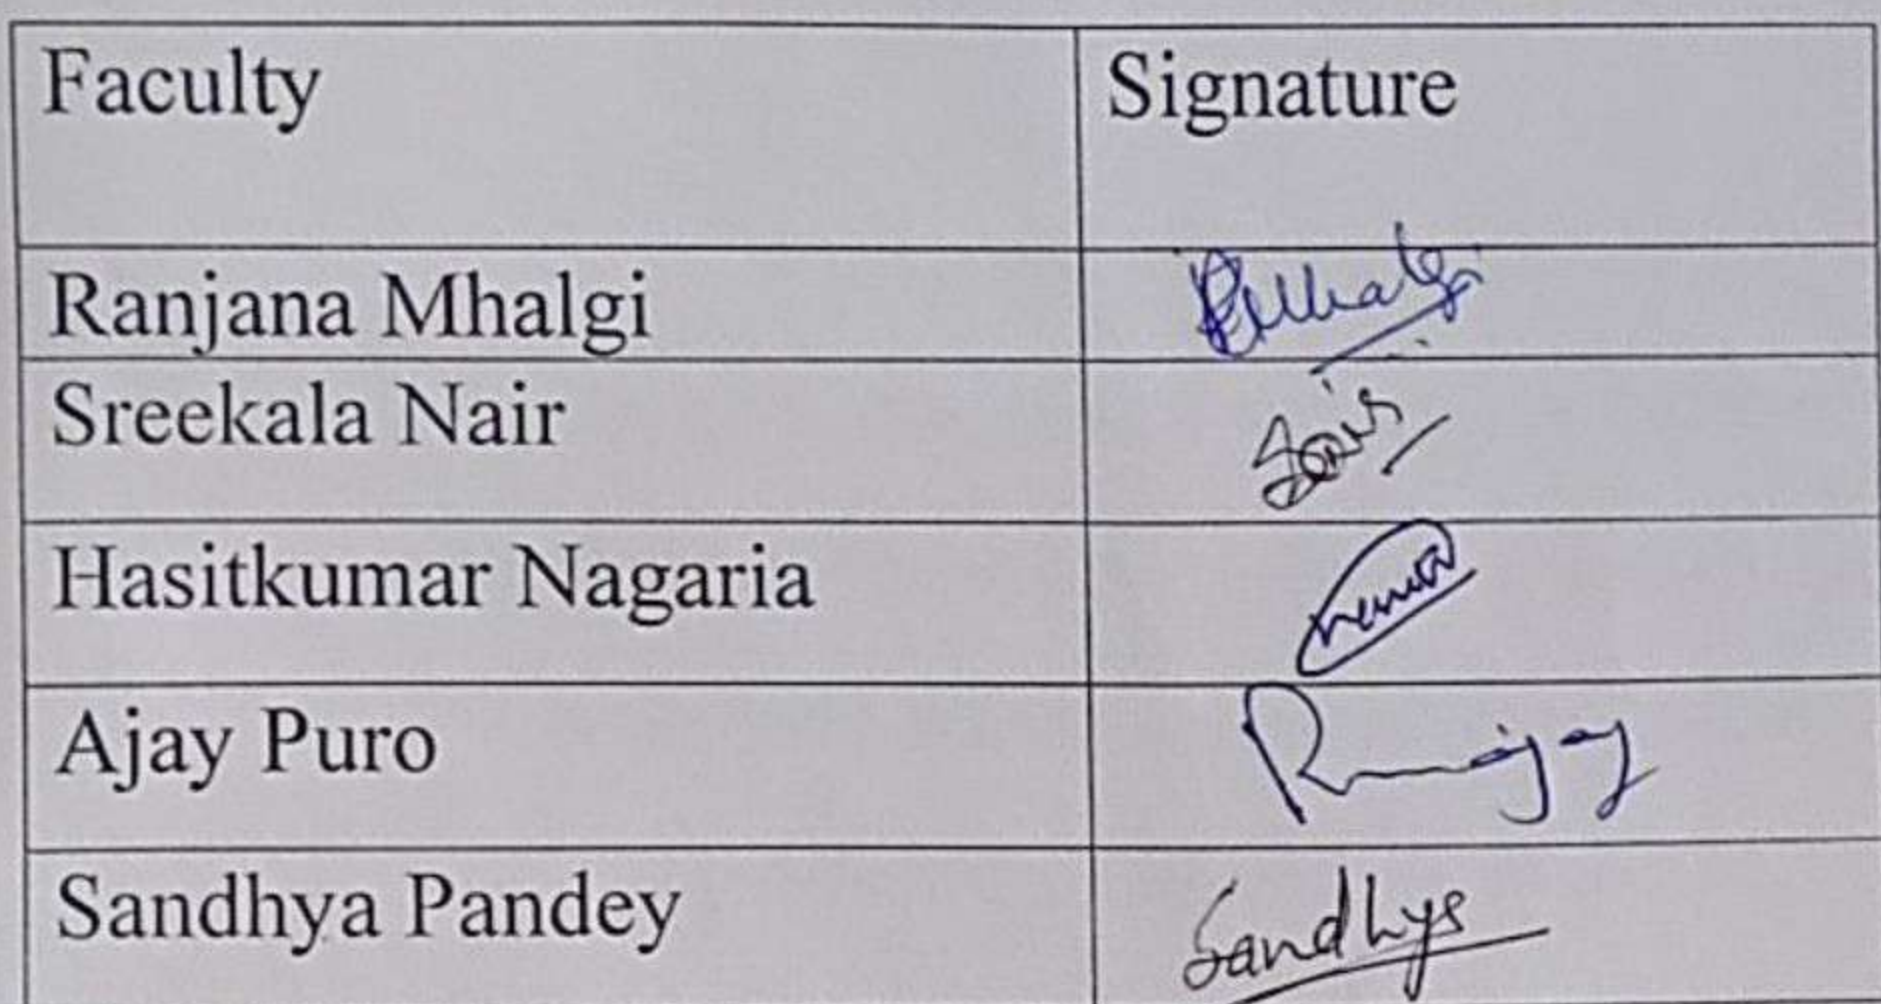 Faculty Signature
Ranjana Mhalgi
Sreekala Nair
Hasitkumar Nagaria
Ajay Puro
Sandhya Pandey Sandhys